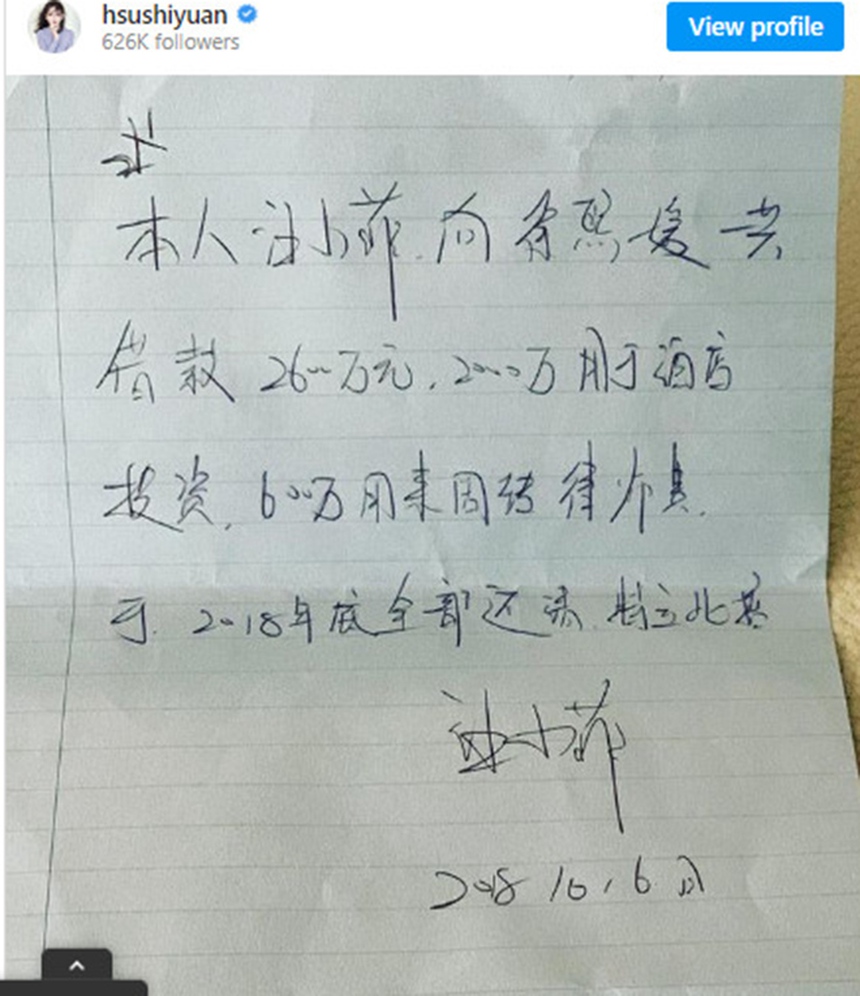 hsushiyuan
626K followers
View profile
本人汪小菲.向徐熙媛共
借款2600万元,2000万用于酒店
投资,600万用来周转律师费.
于.2018年底全部还清.特立此
汪小菲
2018 10,6日